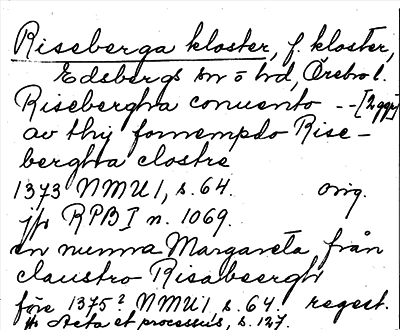 Riseberga kloster, f. kloster,
Edsbergs sn o hd, Örebro l.
Risebergha conuento -- [2 ggr]
av thy fornempdo Rise-
bergha clostre
1373 NMU 1, s. 64. orig.
jfr RPB I n. 1069.
en nunna Margareta från
claustro Risabeergh
före 1375? NMU 1 s. 64. regest.
Acta et processus, s. 127.